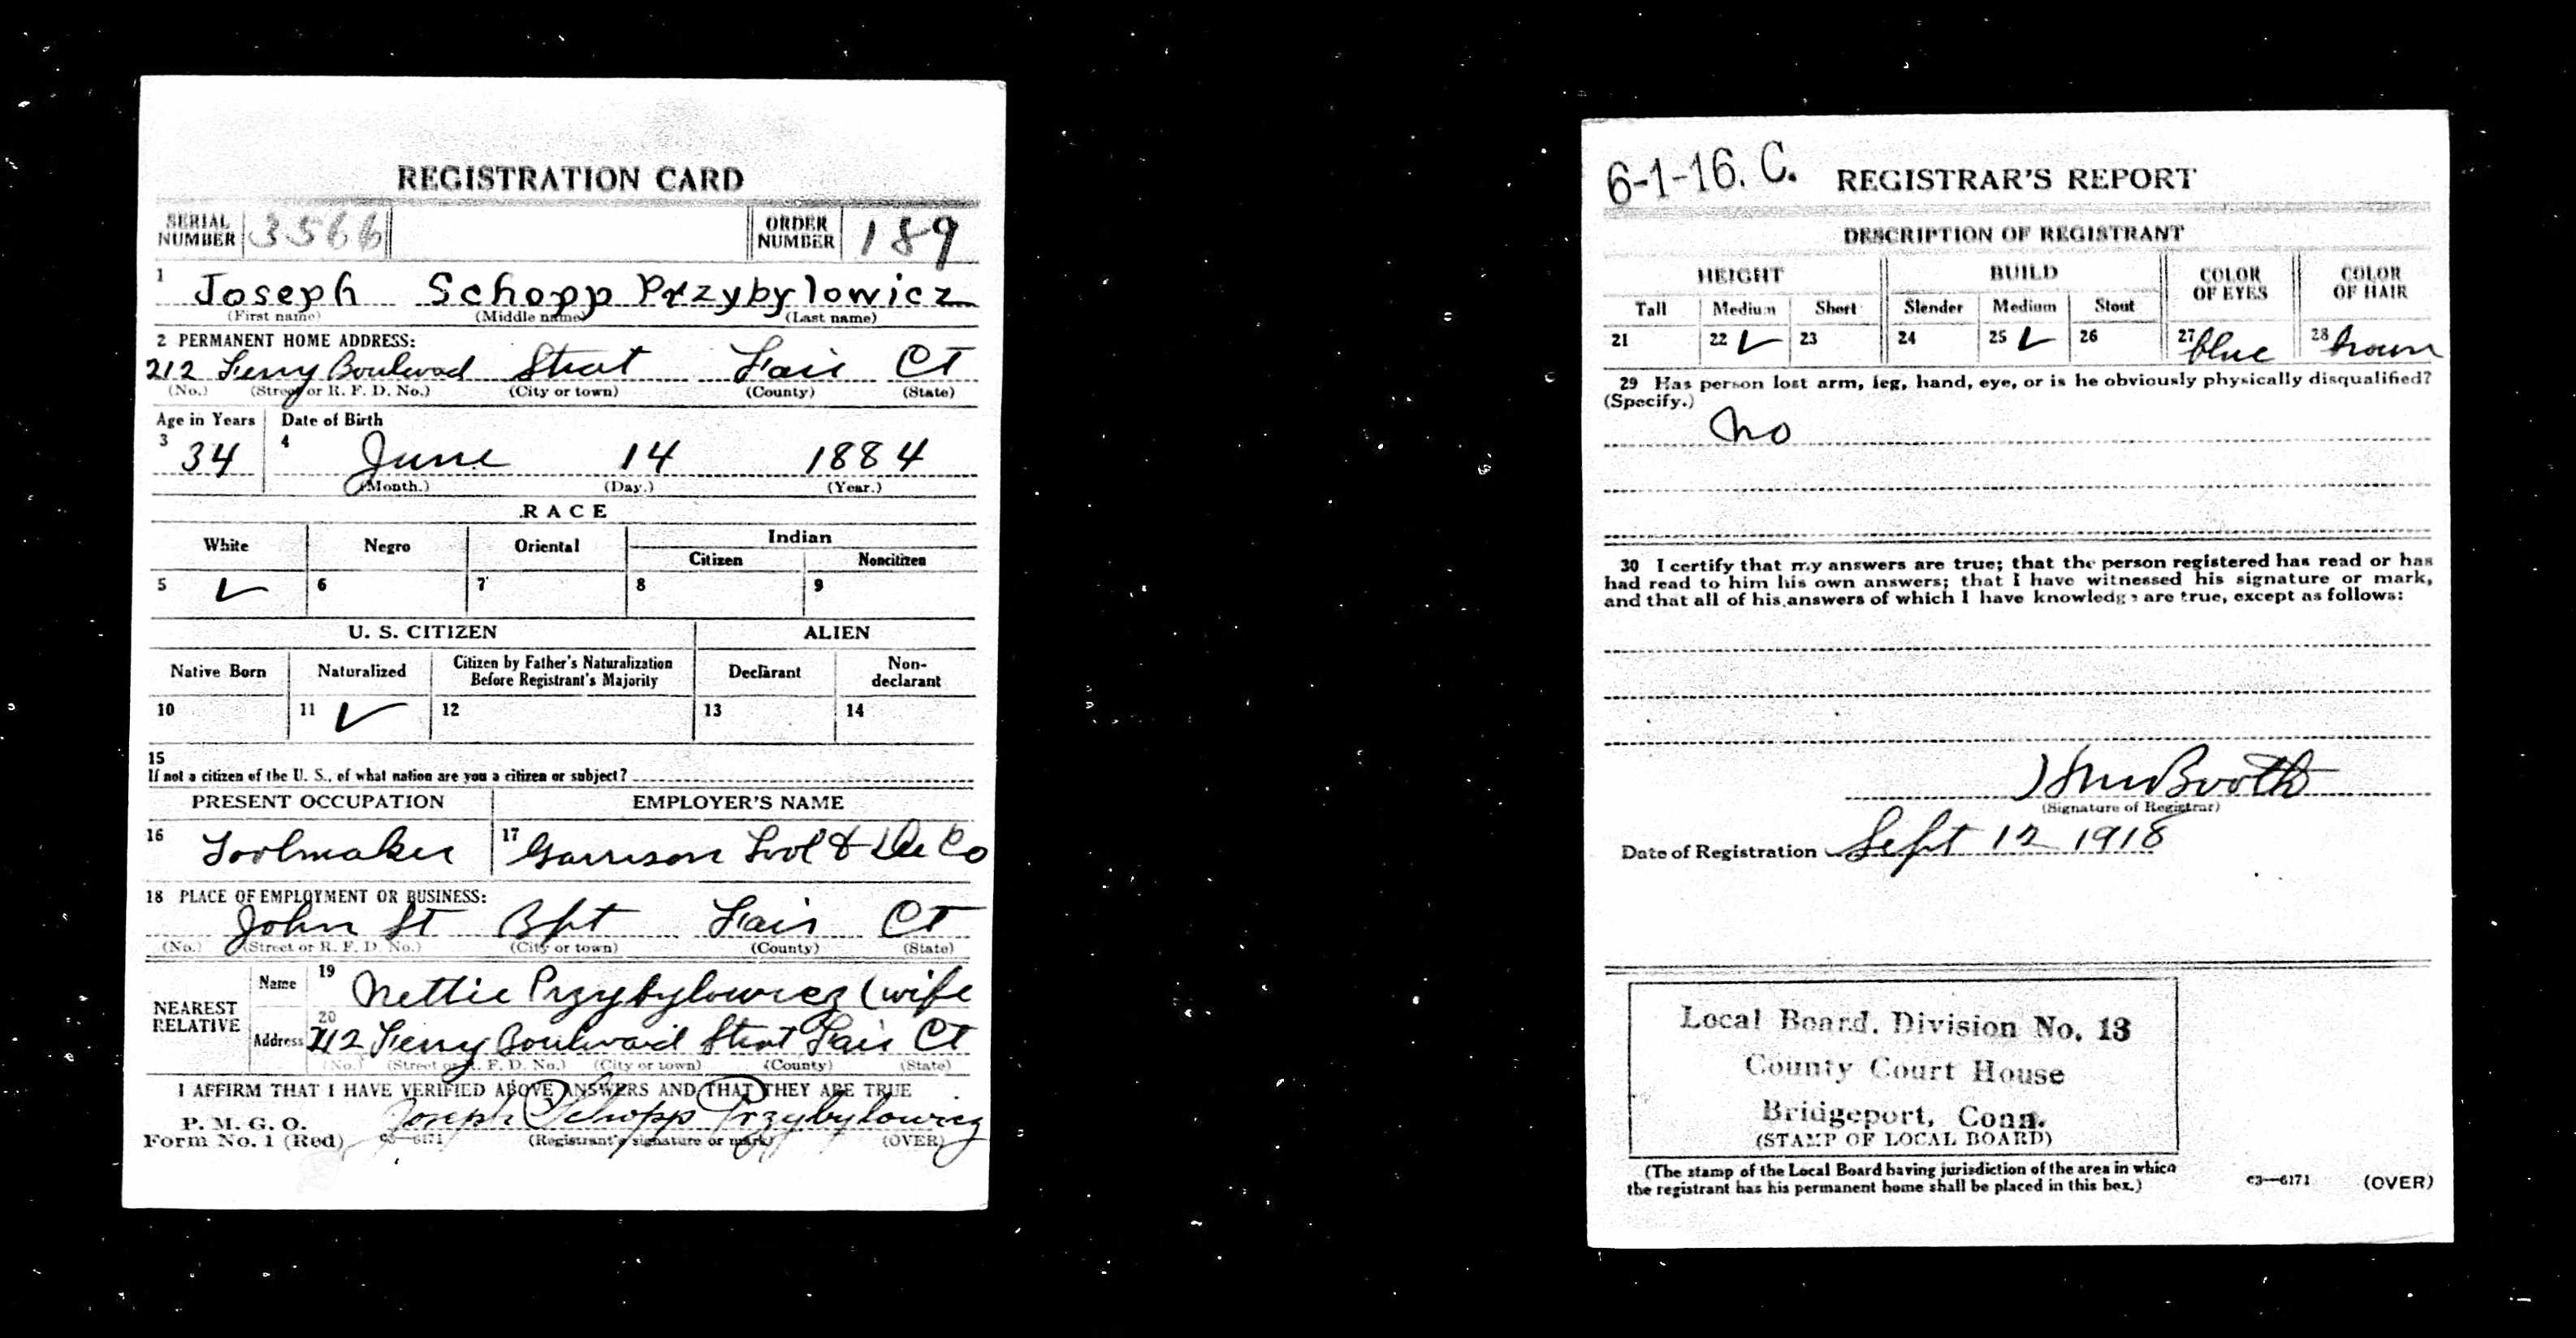 REGISTRATION CARD
SERIAL NUMBER 3566 ORDER NUMBER 189
1 Joseph Schopp Przybylowicz
(First name) (Middle name) (Last name)
2 PERMANENT HOME ADDRESS:
212 Ferry Boulevard Strat Fair CT
(No.) (Street or R. F. D. No.) (City or town) (County) (State)
Age in Years Date of Birth
3 34 4 June 14 1884
(Month.) (Day.) (Year.)
RACE
White Negro Oriental Indian
Citizen Noncitizen
5 ✓ 6 7 8 9
U. S. CITIZEN ALIEN
Native Born Naturalized Citizen by Father's Naturalization Before Registrant's Majority Declarant Non-declarant
10 11 ✓ 12 13 14
15
If not a citizen of the U. S., of what nation are you a citizen or subject?
PRESENT OCCUPATION EMPLOYER'S NAME
16 Toolmaker 17 Garrison Tool & Die Co
18 PLACE OF EMPLOYMENT OR BUSINESS:
John St Bpt Fair CT
(No.) (Street or R. F. D. No.) (City or town) (County) (State)
NEAREST RELATIVE
Name 19 Nettie Przybylowicz (wife
Address 20 212 Ferry Boulevard Strat Fair CT
(No.) (Street or R. F. D. No.) (City or town) (County) (State)
I AFFIRM THAT I HAVE VERIFIED ABOVE ANSWERS AND THAT THEY ARE TRUE
P. M. G. O.
Form No. 1 (Red) c3—6171 Joseph Schopp Przybylowicz
(Registrant's signature or mark) (OVER)
6-1-16. C. REGISTRAR'S REPORT
DESCRIPTION OF REGISTRANT
HEIGHT BUILD COLOR OF EYES COLOR OF HAIR
Tall Medium Short Slender Medium Stout
21 22 ✓ 23 24 25 ✓ 26 27 blue 28 brown
29 Has person lost arm, leg, hand, eye, or is he obviously physically disqualified?
(Specify.)
No
30 I certify that my answers are true; that the person registered has read or has
had read to him his own answers; that I have witnessed his signature or mark,
and that all of his answers of which I have knowledge are true, except as follows:
Booth
(Signature of Registrar)
Date of Registration Sept 12 1918
Local Board, Division No. 13
County Court House
Bridgeport, Conn.
(STAMP OF LOCAL BOARD)
(The stamp of the Local Board having jurisdiction of the area in which
the registrant has his permanent home shall be placed in this box.)
c3—6171 (OVER)